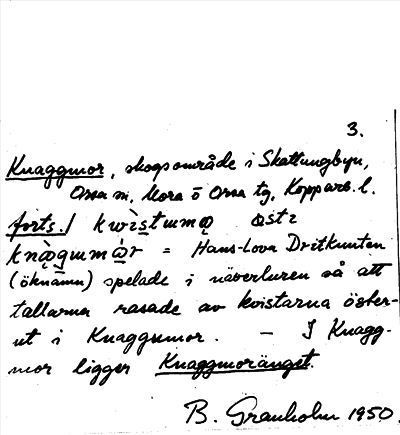 3.
Knaggmor, skogsområde i Skattungbyn,
Orsa sn, Mora o Orsa tg, Kopparb. l.
forts./ kwistummo osti
knogummor = Hans-Lova Dritkunten
(öknamn) spelade i näverluren så att
tallarna rasade av kvistarna öster-
ut i Knaggumor. – I Knagg-
mor ligger Knaggmoränget.
B. Granholm 1950.